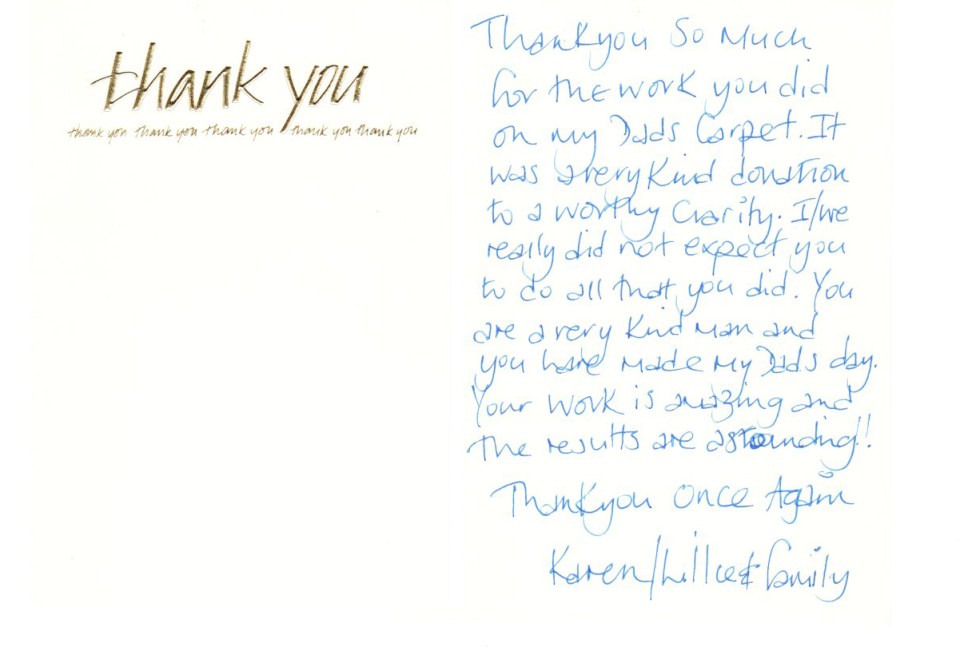 thank you
thank you thank you thank you thank you thank you
Thankyou So Much
for the work you did
on my Dads Carpet. It
was a very Kind donation
to a worthy Charity. I/we
really did not expect you
to do all that you did. You
are a very Kind man and
you have made my Dads day.
Your work is amazing and
the results are astounding!!
Thankyou Once Again
Karen/ & family